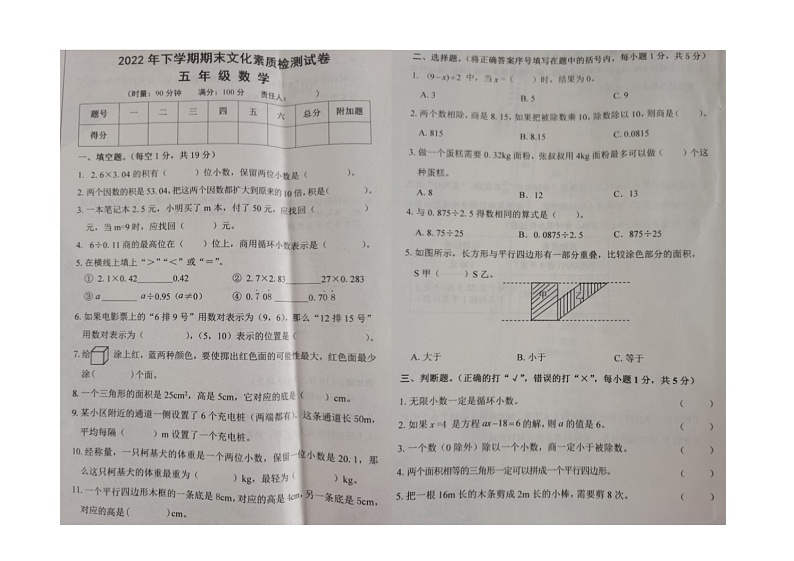 2022 年下学期期末文化素质检测试卷
五 年 级 数 学
(时量: 90 分钟 满分: 100 分 责任人: )
题号 一 二 三 四 五 六 总分 附加题
得分
一、填空题。(每空 1 分, 共 19 分)
1. 2.6×3.04 的积有( )位小数, 保留两位小数是( )。
2. 两个因数的积是 53.04, 把这两个因数都扩大到原来的 10 倍, 积是( )。
3. 一本笔记本 2.5 元, 小明买了 m 本, 付了 50 元, 应找回( )
元, 当 m=9 时, 应找回( )元。
4. 6÷0.11 商的最高位在( )位上, 商用循环小数表示是( )。
5. 在横线上填上 “>” “<” 或 “=”。
① 2.1×0.42______0.42 ② 2.7×2.83______27×0.283
③ a______a÷0.95 (a≠0) ④ 0.7̇08̇______0.7̇08̇
6. 如果电影票上的 “6 排 9 号” 用数对表示为 (9, 6), 那么 “12 排 15 号”
用数对表示为( ), (5, 10) 表示的位置是( )。
7. 给 涂上红, 蓝两种颜色, 要使掷出红色面的可能性最大, 红色面最少
涂( )个面。
8. 一个三角形的面积是 25cm², 高是 5cm, 它对应的底是( )cm。
9. 某小区附近的通道一侧设置了 6 个充电桩 (两端都有), 这条通道长 50m,
平均每隔( )m 设置了一个充电桩。
10. 经称量, 一只柯基犬的体重是一个两位小数, 保留一位小数是 20.1, 那
么这只柯基犬的体重最重为( )kg, 最轻为( )kg。
11. 一个平行四边形木框的一条底是 8cm, 对应的高是 4cm, 另一条底是 5cm,
对应的高是( )cm。
二、选择题。(将正确答案序号填写在题中的括号内, 每小题 1 分, 共 5 分)
1. (9-x)÷2 中, 当 x=( )时, 结果为 0。
A. 3 B. 5 C. 9
2. 两个数相除, 商是 8.15, 如果把被除数乘 10, 除数除以 10, 则商是( )。
A. 815 B. 8.15 C. 0.0815
3. 做一个蛋糕需要 0.32kg 面粉, 张叔叔用 4kg 面粉最多可以做( )个这
种蛋糕。
A. 8 B. 12 C. 13
4. 与 0.875÷2.5 得数相同的算式是( )。
A. 8.75÷25 B. 0.0875÷2.5 C. 875÷25
5. 如图所示, 长方形与平行四边形有一部分重叠, 比较涂色部分的面积,
S 甲( )S 乙。
甲 乙
A. 大于 B. 小于 C. 等于
三、判断题。(正确的打 “√”, 错误的打 “×”, 每小题 1 分, 共 5 分)
1. 无限小数一定是循环小数。 ( )
2. 如果 x=4 是方程 ax-18=6 的解, 则 a 的值是 6。 ( )
3. 一个数 (0 除外) 除以一个小数, 商一定小于被除数。 ( )
4. 两个面积相等的三角形一定可以拼成一个平行四边形。 ( )
5. 把一根 16m 长的木条剪成 2m 长的小棒, 需要剪 8 次。 ( )